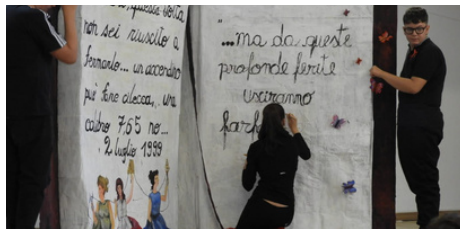 questa volta
non sei riuscito a
fermarlo... un accendino
può fare cilecca,.. una
calibro 7,65 no...
2 luglio 1999
"...ma da queste
profonde ferite
usciranno
farf